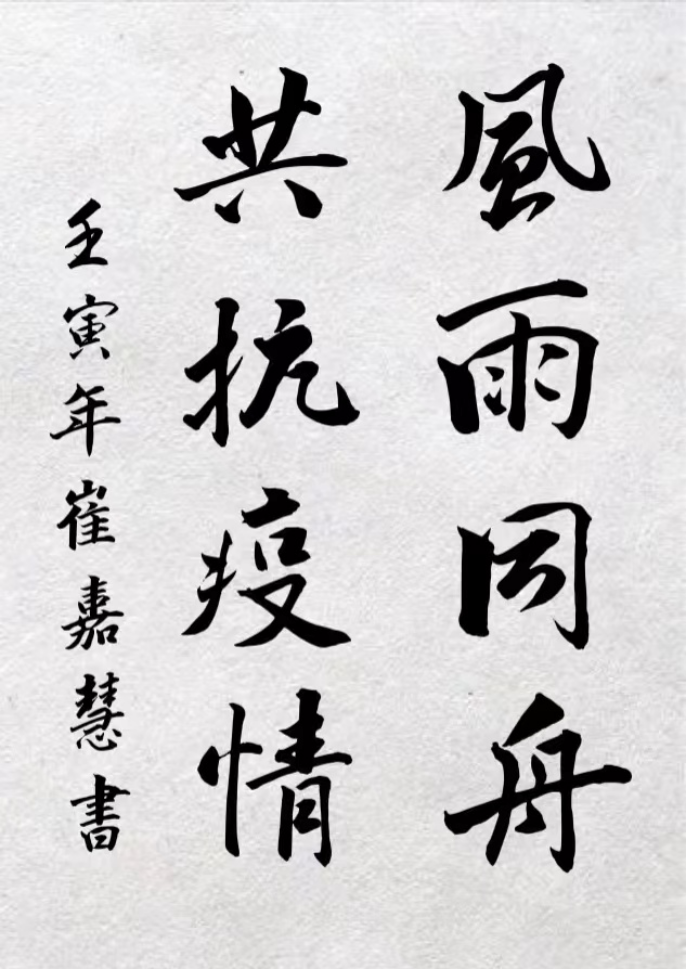 風雨同舟
共抗疫情
壬寅年崔嘉慧書